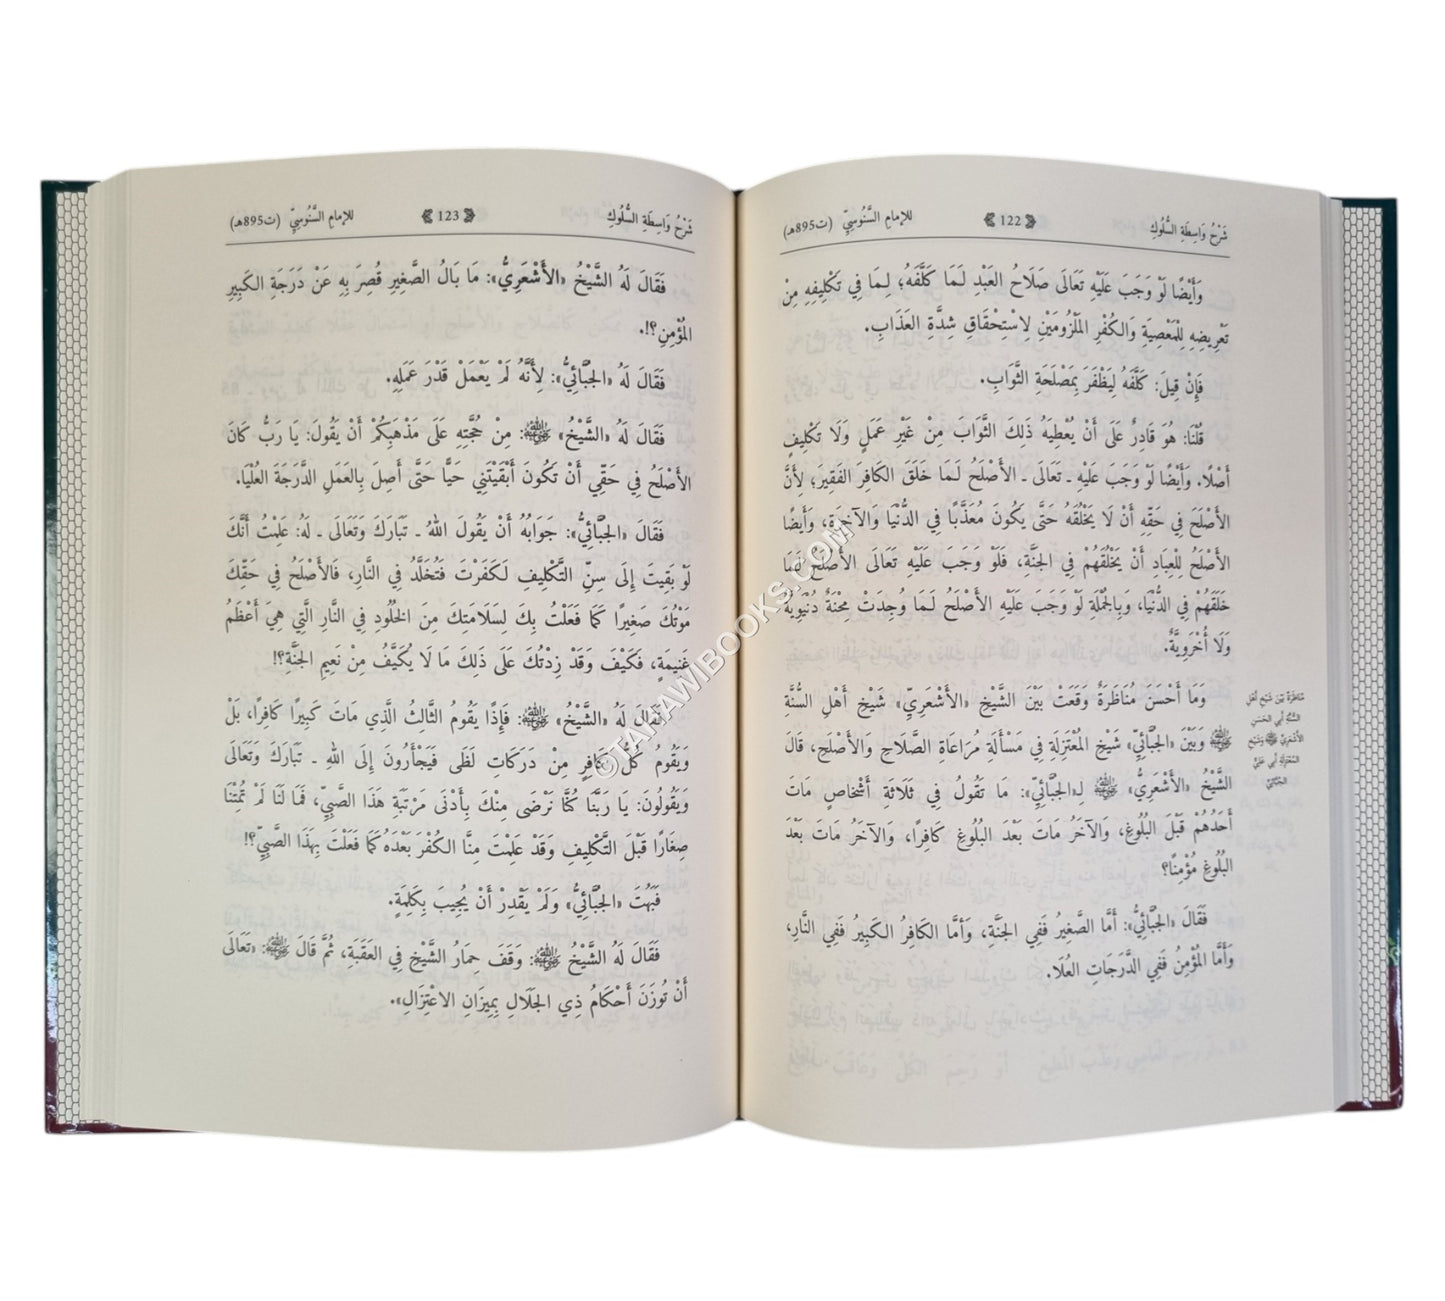 شَرْحُ وَاسِطَةِ السُّلُوكِ 122 للإمامِ السَّنُوسِيِّ (ت895هـ)
وَأَيْضًا لَوْ وَجَبَ عَلَيْهِ تَعَالَى صَلَاحُ العَبْدِ لَـمَا كَلَّفَهُ؛ لِـمَا فِي تَكْلِيفِهِ مِنْ
تَعْرِيضِهِ لِلْمَعْصِيَةِ وَالكُفْرِ المَلْزُومَيْنِ لِاسْتِحْقَاقِ شِدَّةِ العَذَابِ.
فَإِنْ قِيلَ: كَلَّفَهُ لِيَظْفَرَ بِمَصْلَحَةِ الثَّوَابِ.
قُلْنَا: هُوَ قَادِرٌ عَلَى أَنْ يُعْطِيَهُ ذَلِكَ الثَّوَابَ مِنْ غَيْرِ عَمَلٍ وَلَا تَكْلِيفٍ
أَصْلًا. وَأَيْضًا لَوْ وَجَبَ عَلَيْهِ ـ تَعَالَى ـ الأَصْلَحُ لَـمَا خَلَقَ الكَافِرَ الفَقِيرَ؛ لِأَنَّ
الأَصْلَحَ فِي حَقِّهِ أَنْ لَا يَخْلُقَهُ حَتَّى يَكُونَ مُعَذَّبًا فِي الدُّنْيَا وَالآخِرَةِ، وَأَيْضًا
الأَصْلَحُ لِلْعِبَادِ أَنْ يَخْلُقَهُمْ فِي الجَنَّةِ، فَلَوْ وَجَبَ عَلَيْهِ تَعَالَى الأَصْلَحُ لَمَا
خَلَقَهُمْ فِي الدُّنْيَا، وَبِالجُمْلَةِ لَوْ وَجَبَ عَلَيْهِ الأَصْلَحُ لَـمَا وُجِدَتْ مِحْنَةٌ دُنْيَوِيَّةٌ
وَلَا أُخْرَوِيَّةٌ.
وَمَا أَحْسَنَ مُنَاظَرَةٌ وَقَعَتْ بَيْنَ الشَّيْخِ «الأَشْعَرِيِّ» شَيْخِ أَهْلِ السُّنَّةِ
رضي الله عنه وَبَيْنَ «الجُبَّائِيِّ» شَيْخِ المُعْتَزِلَةِ فِي مَسْأَلَةِ مُرَاعَاةِ الصَّلَاحِ وَالأَصْلَحِ، قَالَ
الشَّيْخُ «الأَشْعَرِيُّ» رضي الله عنه لِـ«الجُبَّائِيِّ»: مَا تَقُولُ فِي ثَلَاثَةِ أَشْخَاصٍ مَاتَ
أَحَدُهُمْ قَبْلَ البُلُوغِ، وَالآخَرُ مَاتَ بَعْدَ البُلُوغِ كَافِرًا، وَالآخَرُ مَاتَ بَعْدَ
البُلُوغِ مُؤْمِنًا؟
فَقَالَ «الجُبَّائِيُّ»: أَمَّا الصَّغِيرُ فَفِي الجَنَّةِ، وَأَمَّا الكَافِرُ الكَبِيرُ فَفِي النَّارِ،
وَأَمَّا المُؤْمِنُ فَفِي الدَّرَجَاتِ العُلَا.
مُنَاظَرَةٌ بَيْنَ شَيْخِ أَهْلِ
السُّنَّةِ أَبِي الحَسَنِ
الأَشْعَرِيِّ رضي الله عنه وَشَيْخِ
المُعْتَزِلَةِ أَبِي عَلِيٍّ
الجُبَّائِيِّ
شَرْحُ وَاسِطَةِ السُّلُوكِ 123 للإمامِ السَّنُوسِيِّ (ت895هـ)
فَقَالَ لَهُ الشَّيْخُ «الأَشْعَرِيُّ»: مَا بَالُ الصَّغِيرِ قُصِرَ بِهِ عَنْ دَرَجَةِ الكَبِيرِ
المُؤْمِنِ؟!.
فَقَالَ لَهُ «الجُبَّائِيُّ»: لِأَنَّهُ لَمْ يَعْمَلْ قَدْرَ عَمَلِهِ.
فَقَالَ لَهُ «الشَّيْخُ» رضي الله عنه: مِنْ حُجَّتِهِ عَلَى مَذْهَبِكُمْ أَنْ يَقُولَ: يَا رَبُّ كَانَ
الأَصْلَحُ فِي حَقِّي أَنْ تَكُونَ أَبْقَيْتَنِي حَيًّا حَتَّى أَصِلَ بِالعَمَلِ الدَّرَجَةَ العُلْيَا.
فَقَالَ «الجُبَّائِيُّ»: جَوَابُهُ أَنْ يَقُولَ اللهُ ـ تَبَارَكَ وَتَعَالَى ـ لَهُ: عَلِمْتُ أَنَّكَ
لَوْ بَقِيتَ إِلَى سِنِّ التَّكْلِيفِ لَكَفَرْتَ فَتُخَلَّدُ فِي النَّارِ، فَالأَصْلَحُ فِي حَقِّكَ
مَوْتُكَ صَغِيرًا كَمَا فَعَلْتُ بِكَ لِسَلَامَتِكَ مِنَ الخُلُودِ فِي النَّارِ الَّتِي هِيَ أَعْظَمُ
غَنِيمَةٍ، فَكَيْفَ وَقَدْ زِدْتُكَ عَلَى ذَلِكَ مَا لَا يُكَيَّفُ مِنْ نَعِيمِ الجَنَّةِ؟!
فَقَالَ لَهُ «الشَّيْخُ» رضي الله عنه: فَإِذًا يَقُومُ الثَّالِثُ الَّذِي مَاتَ كَبِيرًا كَافِرًا، بَلْ
وَيَقُومُ كُلُّ كَافِرٍ مِنْ دَرَكَاتِ لَظَى فَيَجْأَرُونَ إِلَى اللهِ ـ تَبَارَكَ وَتَعَالَى
وَيَقُولُونَ: يَا رَبَّنَا كُنَّا نَرْضَى مِنْكَ بِأَدْنَى مَرْتَبَةِ هَذَا الصَّبِيِّ، فَمَا لَنَا لَمْ تُمِتْنَا
صِغَارًا قَبْلَ التَّكْلِيفِ وَقَدْ عَلِمْتَ مِنَّا الكُفْرَ بَعْدَهُ كَمَا فَعَلْتَ بِهَذَا الصَّبِيِّ؟!
فَبُهِتَ «الجُبَّائِيُّ» وَلَمْ يَقْدِرْ أَنْ يُجِيبَ بِكَلِمَةٍ.
فَقَالَ لَهُ الشَّيْخُ رضي الله عنه: وَقَفَ حِمَارُ الشَّيْخِ فِي العَقَبَةِ، ثُمَّ قَالَ رضي الله عنه: «تَعَالَى
أَنْ تُوزَنَ أَحْكَامُ ذِي الجَلَالِ بِمِيزَانِ الاعْتِزَالِ».
©TAHAWIBOOKS.COM